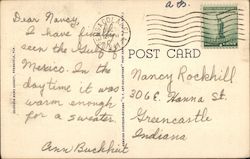 a.s.
Dear Nancy,
I have finally
seen the Gulf of
Mexico. In the
daytime it was
warm enough
for a sweater.
Ann Buckhut
POST CARD
Nancy Rockhill
306 E. Hanna St.
Greencastle
Indiana